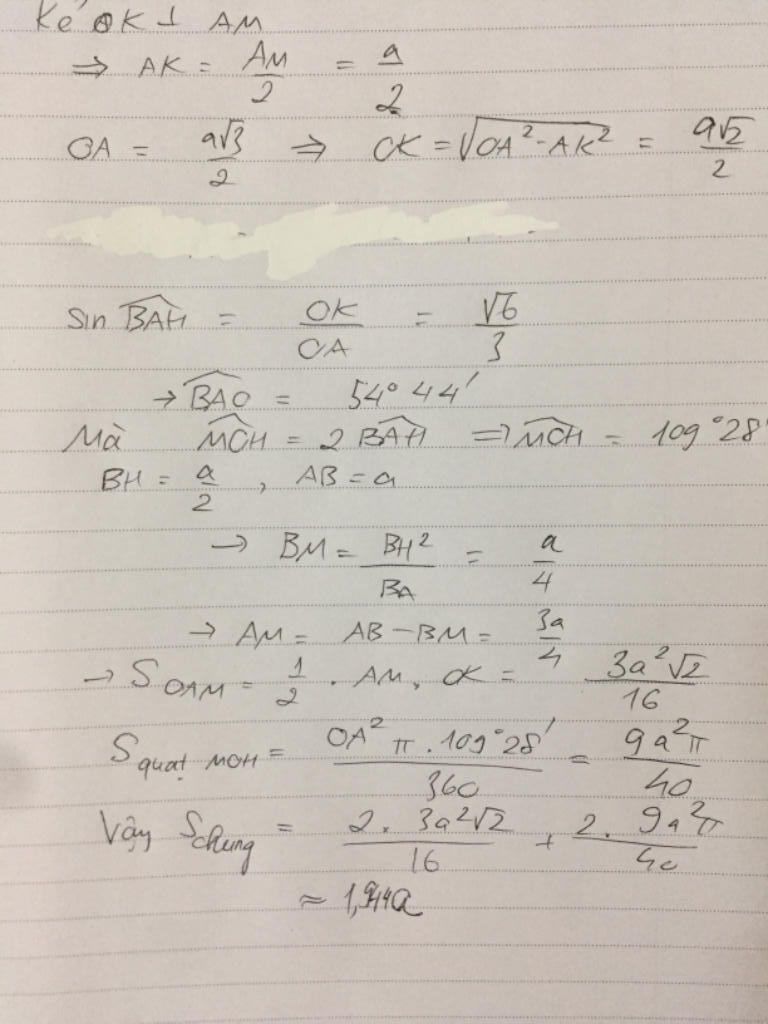 Kẻ OK ⊥ AM
⇒ AK = AM/2 = a/2
OA = a√3/2 ⇒ OK = √(OA² - AK²) = a√2/2
Sin BAH = OK/OA = √6/3
→ BAO = 54°44'
Mà MOH = 2 BAH ⇒ MOH = 109°28'
BH = a/2 , AB = a
→ BM = BH²/BA = a/4
→ AM = AB - BM = 3a/4
→ S OAM = 1/2 . AM . OK = 3a²√2/16
S quạt MOH = OA² π . 109°28'/360 = 9a²π/40
Vậy S chung = 2. 3a²√2/16 + 2. 9a²π/40
≈ 1,944a